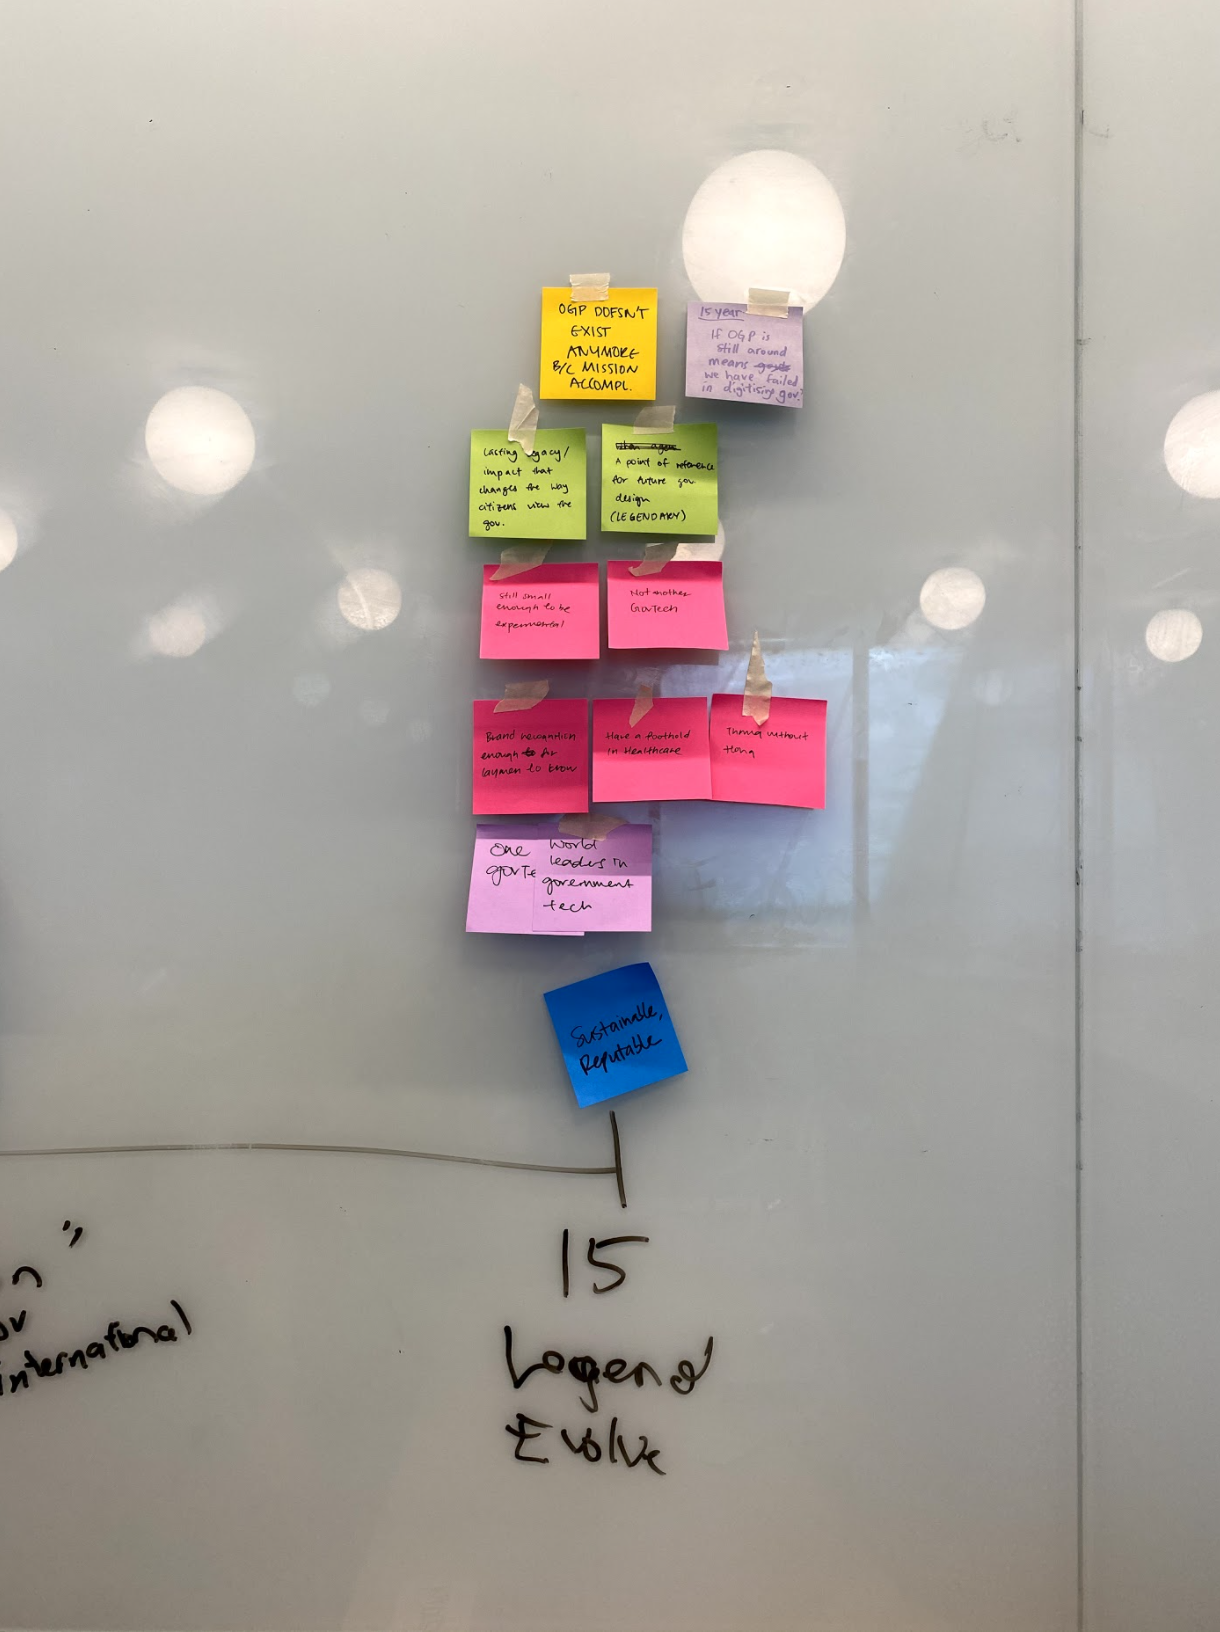 OGP DOESN'T
EXIST
ANYMORE
B/C MISSION
ACCOMPL.
15 year
If OGP is
still around
means
we have failed
in digitising gov.
Lasting legacy/
impact that
changes the way
citizens view the
gov.
A point of reference
for future gov
design
(LEGENDARY)
Still small
enough to be
experimental
Not another
GovTech
Brand recognition
enough for
laymen to know
Have a foothold
in Healthcare
Thriving without
Hong
One
govTe
World
leaders in
government
tech
Sustainable,
Reputable
15
Legend
Evolve
"
n
ov
international